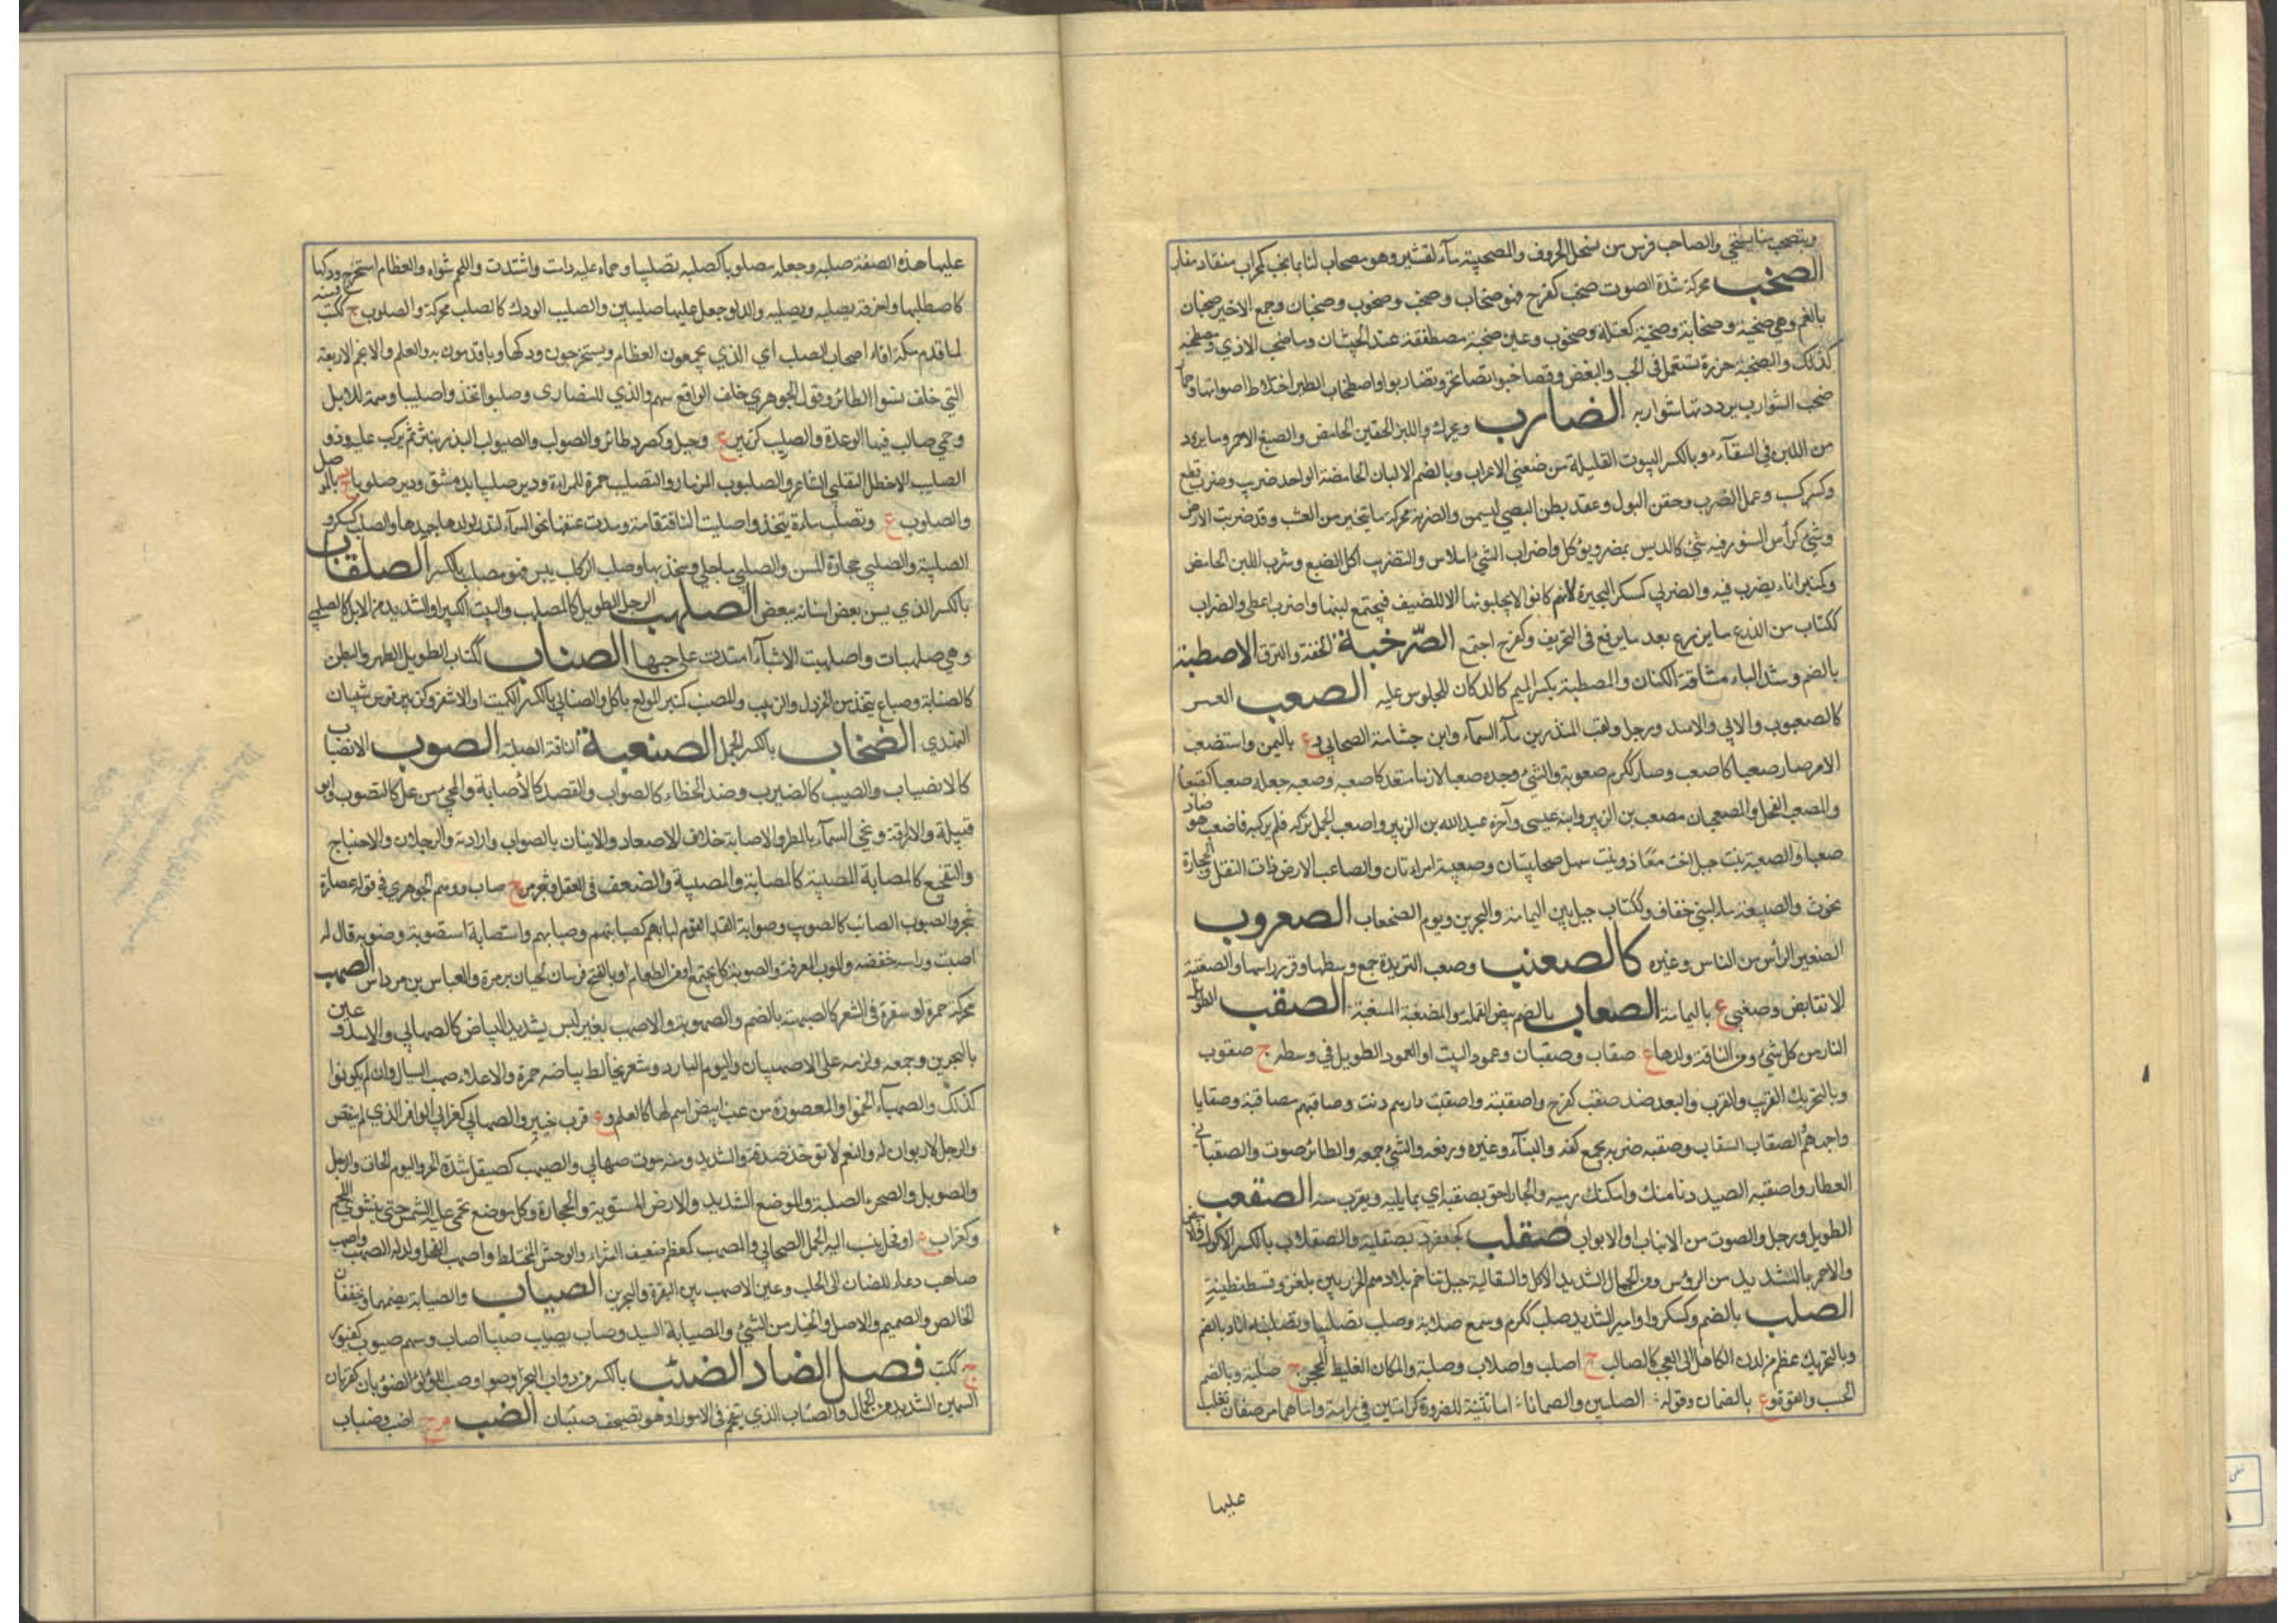 ويتصحب منا يستحي والصاحب فرس من نسل الحرون والمصحبية ماء لقشير وهو مصحاب لنا بما نحب كمحراب منقاد
الصخب محركة شدة الصوت صخب كفرح فهو صخاب وصخب وصخوب وصخبان وجمع الاخير صخبان
بالضم وهي صخبة وصخابة وصخبة كعتلة وصخوب وعين صخبة مصطفقة عند الجيشان وماء صخب الاذي ومصطخبه
كذلك والصخبة خرزة تستعمل في الحب والبغض وتصاخبوا تصايحوا وتضاربوا واصطخاب الطير اختلاط اصواتها وحمار
صخب الشوارب يردد نهاقه في شواربه الضارب ويحرك واللبن الحقين الحامض والصبغ الاحمر وما يزود
من اللبن في السقاء وبالكسر البيوت القليلة من ضعفى الاعراب وبالضم الالبان الحامضة الواحد ضريب وضرب قطع
وكسر كسب وعمل الضرب وحقن البول وعقد بطن الصبي ليسمن والضربة محركة ما يتخير من العشب وقد ضربت الارض
وشيء كرأس السنور فيه شيء كالدبس يمص ويؤكل واضراب الشيء املاس والتضريب اكل الضبع وشرب اللبن الحامض
وكمنبر اناء يضرب فيه والضربي كسكرى البحيرة لانهم كانوا لا يحلبونها الا للضيف فيجتمع لبنها واضرب اعطى والضراب
ككتاب من الزرع ما يزرع بعد ما يرفع في الخريف وكفرح اجتمع الصرخبة الخفة والنزق الاصطبة
بالضم وشد الباء مشاقة الكتان والمصطبة بكسر الميم كالدكان للجلوس عليه الصعب العسر
كالصعبوب والابي والاسد ورجل ولقب المنذر بن ماء السماء وابن جثامة الصحابي وع باليمن واستصعب
الامر صار صعبا كاصعب وصار ككرم صعوبة والشيء وجده صعبا لازم متعد كاصعبه وصعبه جعله صعبا كتصعبه
والمصعب الفحل والمصعبان مصعب بن الزبير وابنه عيسى او اخوه عبد الله بن الزبير واصعب الجمل تركه فلم يركبه فاصعب هو صار
صعبا والصعبة بنت جبل اخت معاذ وبنت سهل صحابيتان وصعبية امراءتان والصاعب الارض ذات النقل والحجارة
تحرث والصعبية ماء لبني خفاف وككتاب جبل بين اليمامة والبحرين ويوم الصعاب الصعروب
الصغير الرأس من الناس وغيره كالصعنب وصعنب الثريدة جمع وسطها وقور راسها والصعنبة
الانقباض وصعنبى ع باليمامة الصعاب بالضم بيض القملة والمصغبة المسغبة الصقب الطويل
التار من كل شيء ومن الناقة ولدها ع صقاب وصقبان وعمود البيت او العمود الطويل في وسطه ج صقوب
وبالتحريك القريب والقرب والبعد ضد صقب كفرح واصقبته واصقبت دارهم دنت وصاقبهم مصاقبة وصقابا
واجههم الصقاب السقاب وصقبه ضربه بجمع كفه والبناء وغيره ورفعه والشيء جمعه والطائر صوت والصقباني
العطار واصقبه الصيد دنا منك وامكنك رميه والجار احق بصقبه اي بما يليه ويقرب منه الصقعب
الطويل ورجل والصوت من الانياب او الابواب صقلب كجعفر د بصقلية والصقلاب بالكسر الاكول والابيض
والاحمر بالتشديد من الرؤس ومن الجمال الشديد الاكل والسقالبة جيل تتاخم بلادهم الخزر بين بلغر وقسطنطينية
الصلب بالضم وكسكر وامير الشديد صلب ككرم وسمع صلابة وصلب تصليبا وتصلب انا وبالضم
وبالتحريك عظم من لدن الكاهل الى العجب كالصالب ج اصلب واصلاب وصلبة والمكان الغليظ المحجر ج صلبة وبالضم
الحسب والقوة وع بالصمان وقوله الصلبين والصمانا اما تثنية للضرورة كرامتين في رامة واما هما موضعان تغلب
عليها
عليها هذه الصفة صلبه وجعله مصلوبا كصلبه تصليبا وحماه عليه دامت واشتدت واللحم شواه والعظام استخرج ودكها
كاصطلبها واحرقته يصلبه ويصلبه والدلو جعل عليها صليبين والصليب الودك كالصلب محركة والصلوب ج ككتب ومنه
لما قدم مكة اتاه اصحاب الصلب اي الذين يجمعون العظام ويستخرجون ودكها وياتدمون به والعلم والانجم الاربعة
التي خلف نسر الطائر وقول الجوهري خلف الواقع سهم والذي للنصارى وصلبوا اتخذوا صليبا وسمة للابل
وحمى صالب فيها الرعدة والصليب كزبير ع وجبل وكصرد طائر والصولب والصيولب البذر ينثر ثم يكرب عليه وذو
الصليب الاخطل التغلبي الشاعر والصلبوب المزمار والتصليب خمرة للمراة ودير صليبا بدمشق ودير صلوبا ة بالموصل
والصلوب ع وتصلب ماءة يتخذ واصلبت الناقة قامت ومدت عنقها نحو السماء لتدر لولدها جهدها والصلب كسكر و
الصلبية والصلبي حجارة المسن والصلبي ما جلي وشحذ بها وصلب الركاب يبس فهو مصلب بالكسر الصلقاب
بالكسر الذي يسن بعض اسنانه ببعض الصلهب الرجل الطويل كالمصلهب والبيت الكبير والشديد من الابل كالصلهبى
وهي صلهبات واصلهبت الاشياء امتدت على جهتها الصناب ككتاب الطويل الظهر والبطن
كالصنابة وصباغ يتخذ من الخردل والزبيب والمصنب كمنبر المولع باكله والصنابي بالكسر الكميت او الاشقر وكزبير فرس شيبان
النهدي الضخاب بالكسر الجمل الصنعبة الناقة الصلبة الصوب الانصباب
كالانصياب والصيب كالصيوب وضد الخطاء كالصواب والقصد كالاصابة والمجيء من عل كالتصوب وابو
قبيلة والاراقة ومجيء السماء بالمطر والاصابة خلاف الاصعاد والاتيان بالصواب وارادته والوجدان والاحتياج
والتفجيع كالمصابة المصيبة كالمصابة والمصوبة والضعف في العقل وشجر مر ج صاب ووهم الجوهري في قوله عصارة
شجر والصيوب الصائب كالصويب وصوابة القوم لبابهم كصيابتهم وصيابهم واستصابه استصوبه وصوبه قال له
اصبت وراسه خفضه والمصوب المغرفة والصوبة كل مجتمع او من الطعام او بالفتح فرسان لحسان بن مرة والعباس بن مرداس الصهب
محركة حمرة او شقرة في الشعر كالصهبة بالضم والصهوبة والاصهب بعير ليس بشديد البياض كالصهابي والاسد وعين
بالبحرين وجمعه وادرمه على الاصهبيات واليوم البارد وشعر يخالط بياضه حمرة والاعداء صهب السبال وان لم يكونوا
كذلك والصهباء الخمر او المعصورة من عنب ابيض اسم لها كالعلم وع قرب خيبر والصهابي كغرابي الوافر الذي لم ينقص
والرجل لا ديوان له والنعم لا تؤخذ صدقته والشديد ومنه موت صهابي والصيهب كصيقل شدة الحر واليوم الحار والرجل
والطويل والصخرة الصلبة والموضع الشديد والارض المستوية والحجارة وكل موضع تحمى عليه الشمس حتى ينشوي اللحم
وكغراب ع او فحل نسب اليه الجمل الصحابي والمصهب كمعظم صفيف الشواء والوحش المختلط واصهب الفحل ولد له الصهب واصهب
صاهب دعاء للضان الى الحلب وعين الاصهب بين البصرة والبحرين الصياب والصيابة بضمهما ويخففان
الخالص والصميم والاصل والخيار من الشيء والصيابة السيد وصاب يصيب صيبا اصاب وسهم صيوب كغيور
ج ككتب فصل الضاد الضئب بالكسر من دواب البحر او ضوا وحب اللؤلؤ والضؤبان كقربان
السمين الشديد من الجمال والضآب الذي يتقحم في الامور او هو تصحيف صئبان الضب م ج اضب وضباب